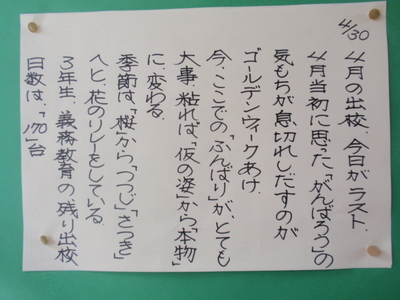 4/30
4月の出校、今日がラスト、
4月当初に思った「がんばろう」の
気もちが息切れしだすのが
ゴールデンウィークあけ、
今、ここでの「ふんばり」が、とても
大事、粘れば「仮の姿」から「本物」
に、変わる、
季節は、「桜」から「つつじ」「さつき」
へと、花のリレーをしている、
3年生、義務教育の残り出校
日数は、「170」台